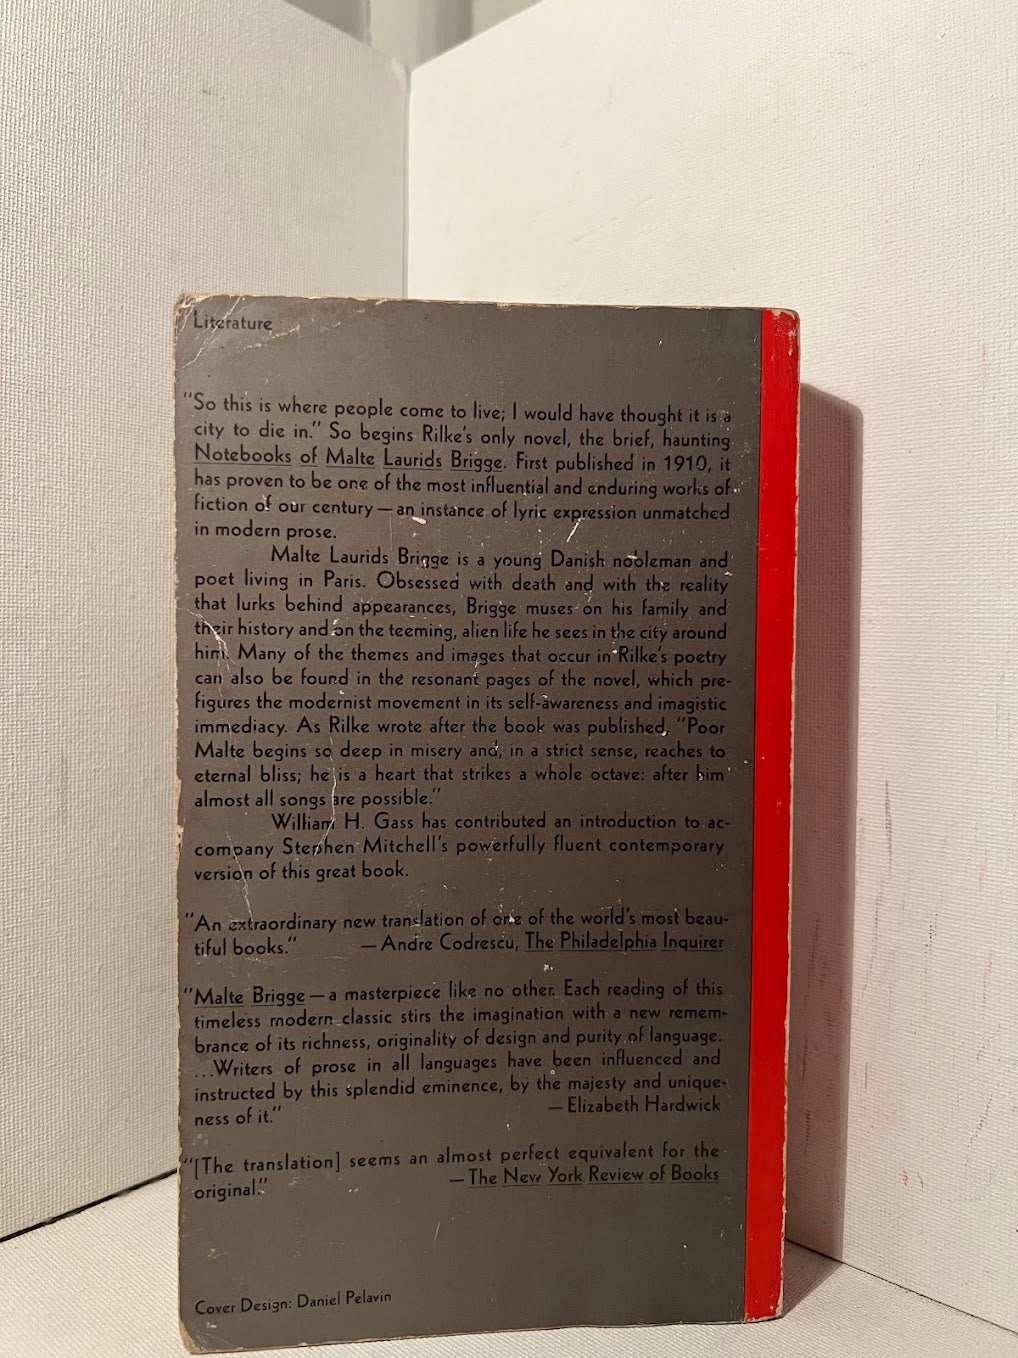 Literature
"So this is where people come to live; I would have thought it is a
city to die in." So begins Rilke's only novel, the brief, haunting
Notebooks of Malte Laurids Brigge. First published in 1910, it
has proven to be one of the most influential and enduring works of
fiction of our century—an instance of lyric expression unmatched
in modern prose.
Malte Laurids Brigge is a young Danish nobleman and
poet living in Paris. Obsessed with death and with the reality
that lurks behind appearances, Brigge muses on his family and
their history and on the teeming, alien life he sees in the city around
him. Many of the themes and images that occur in Rilke's poetry
can also be found in the resonant pages of the novel, which pre-
figures the modernist movement in its self-awareness and imagistic
immediacy. As Rilke wrote after the book was published, "Poor
Malte begins so deep in misery and, in a strict sense, reaches to
eternal bliss; he is a heart that strikes a whole octave: after him
almost all songs are possible."
William H. Gass has contributed an introduction to ac-
company Stephen Mitchell's powerfully fluent contemporary
version of this great book.
"An extraordinary new translation of one of the world's most beau-
tiful books." —Andre Codrescu, The Philadelphia Inquirer
"Malte Brigge—a masterpiece like no other. Each reading of this
timeless modern classic stirs the imagination with a new remem-
brance of its richness, originality of design and purity of language.
...Writers of prose in all languages have been influenced and
instructed by this splendid eminence, by the majesty and unique-
ness of it." —Elizabeth Hardwick
"[The translation] seems an almost perfect equivalent for the
original." —The New York Review of Books
Cover Design: Daniel Pelavin